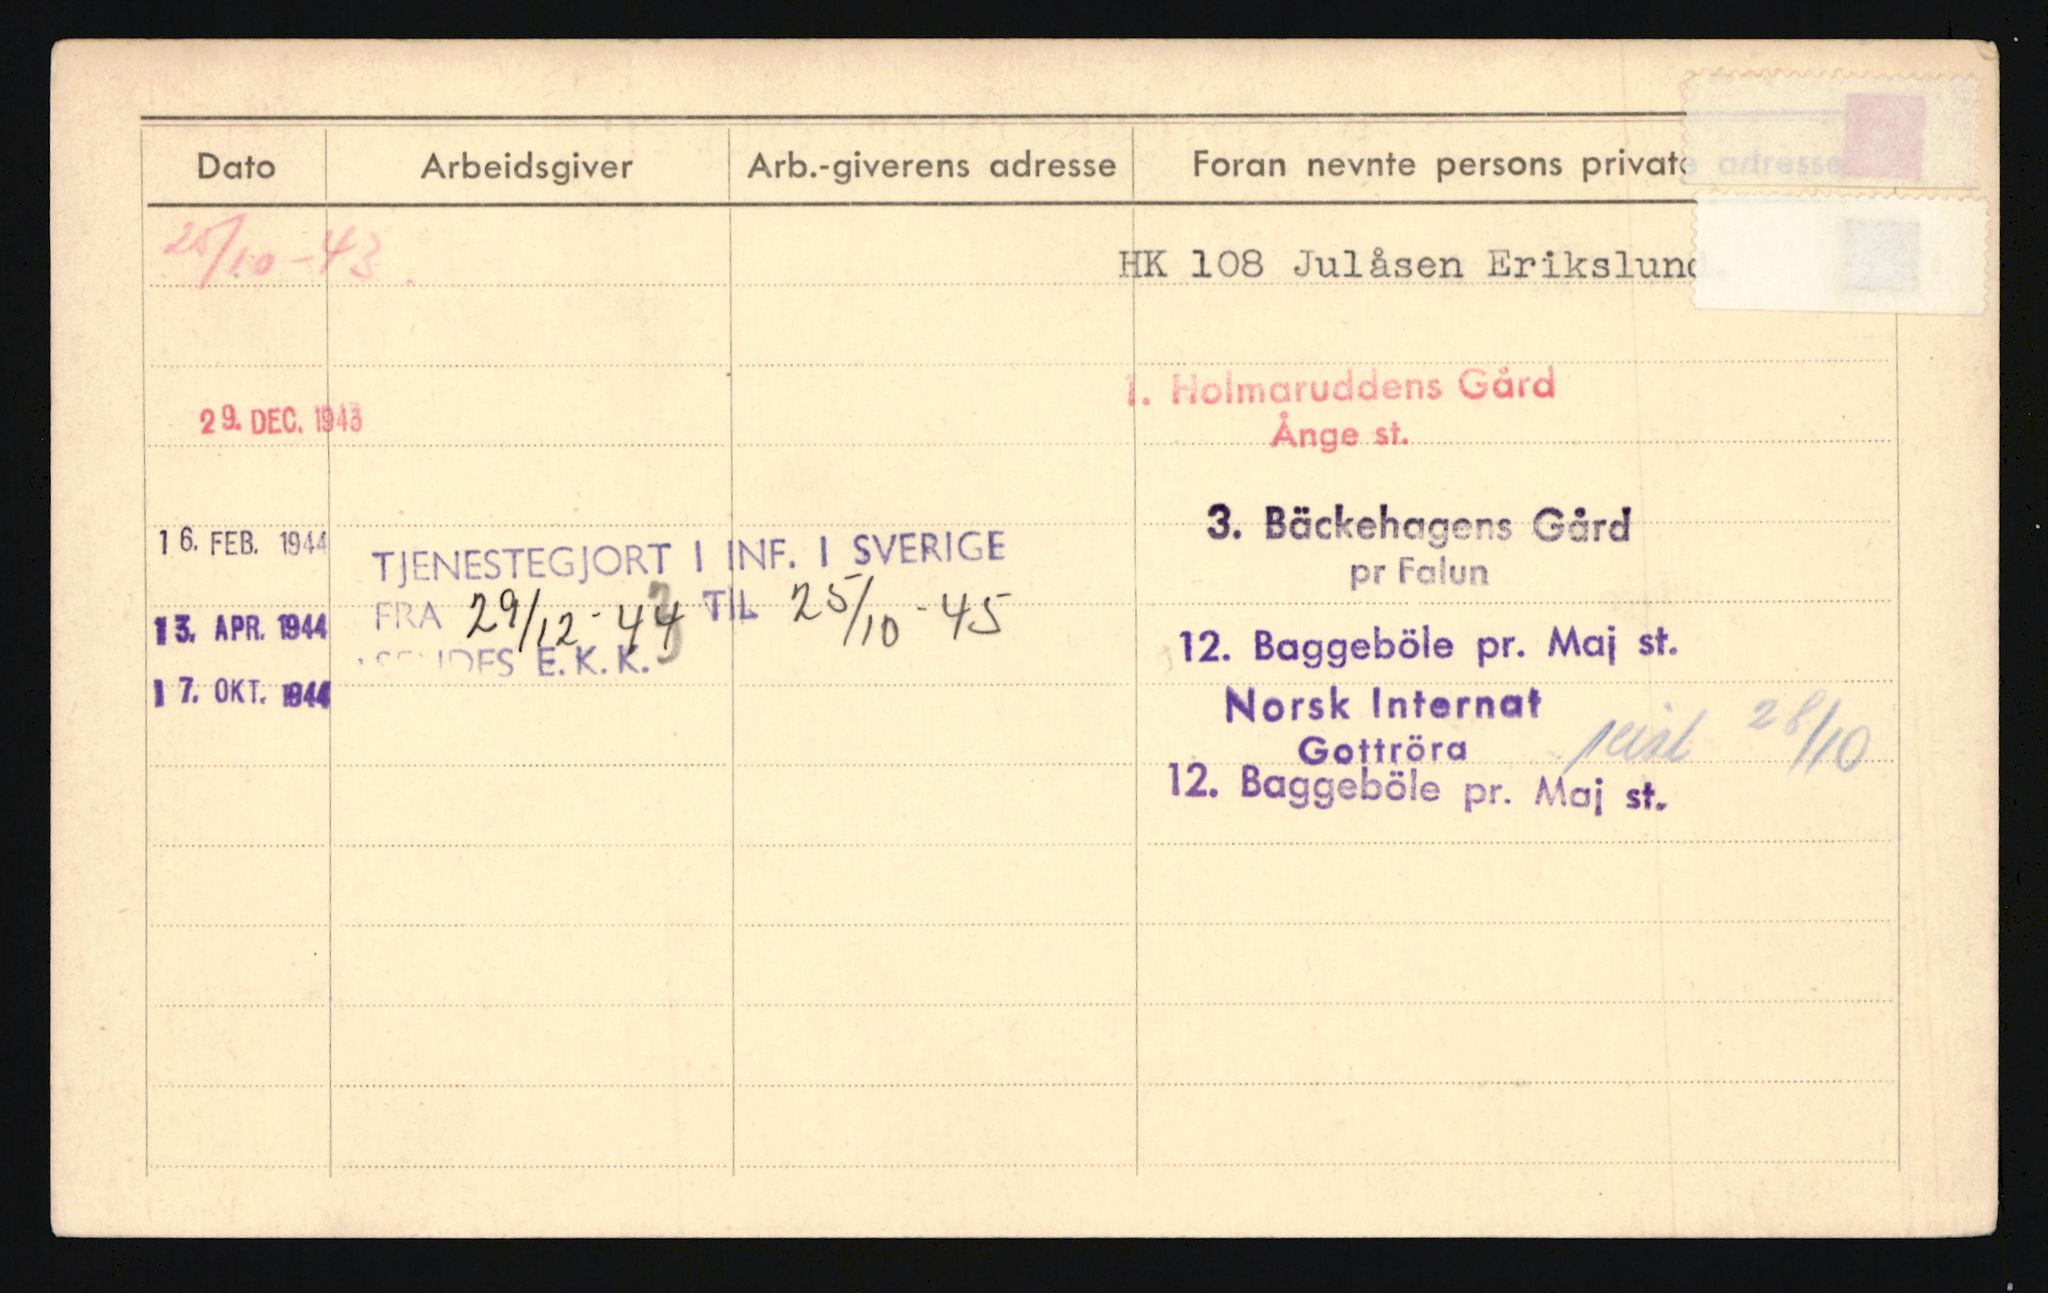 Dato Arbeidsgiver Arb.-giverens adresse Foran nevnte persons private adresse
25/10-43. HK 108 Julåsen Erikslund.
1. Holmaruddens Gård
29. DEC. 1943 Ånge st.
3. Bäckehagens Gård
16. FEB. 1944 TJENESTEGJORT I INF. I SVERIGE
pr Falun
FRA 29/12-43 TIL 25/10-45
13. APR. 1944 12. Baggeböle pr. Maj st.
E. K. K.
17. OKT. 1944 Norsk Internat
Gottröra reist 28/10
12. Baggeböle pr. Maj st.